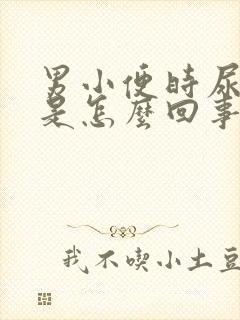 男小便時尿
是怎麼回事
我不喫小土豆